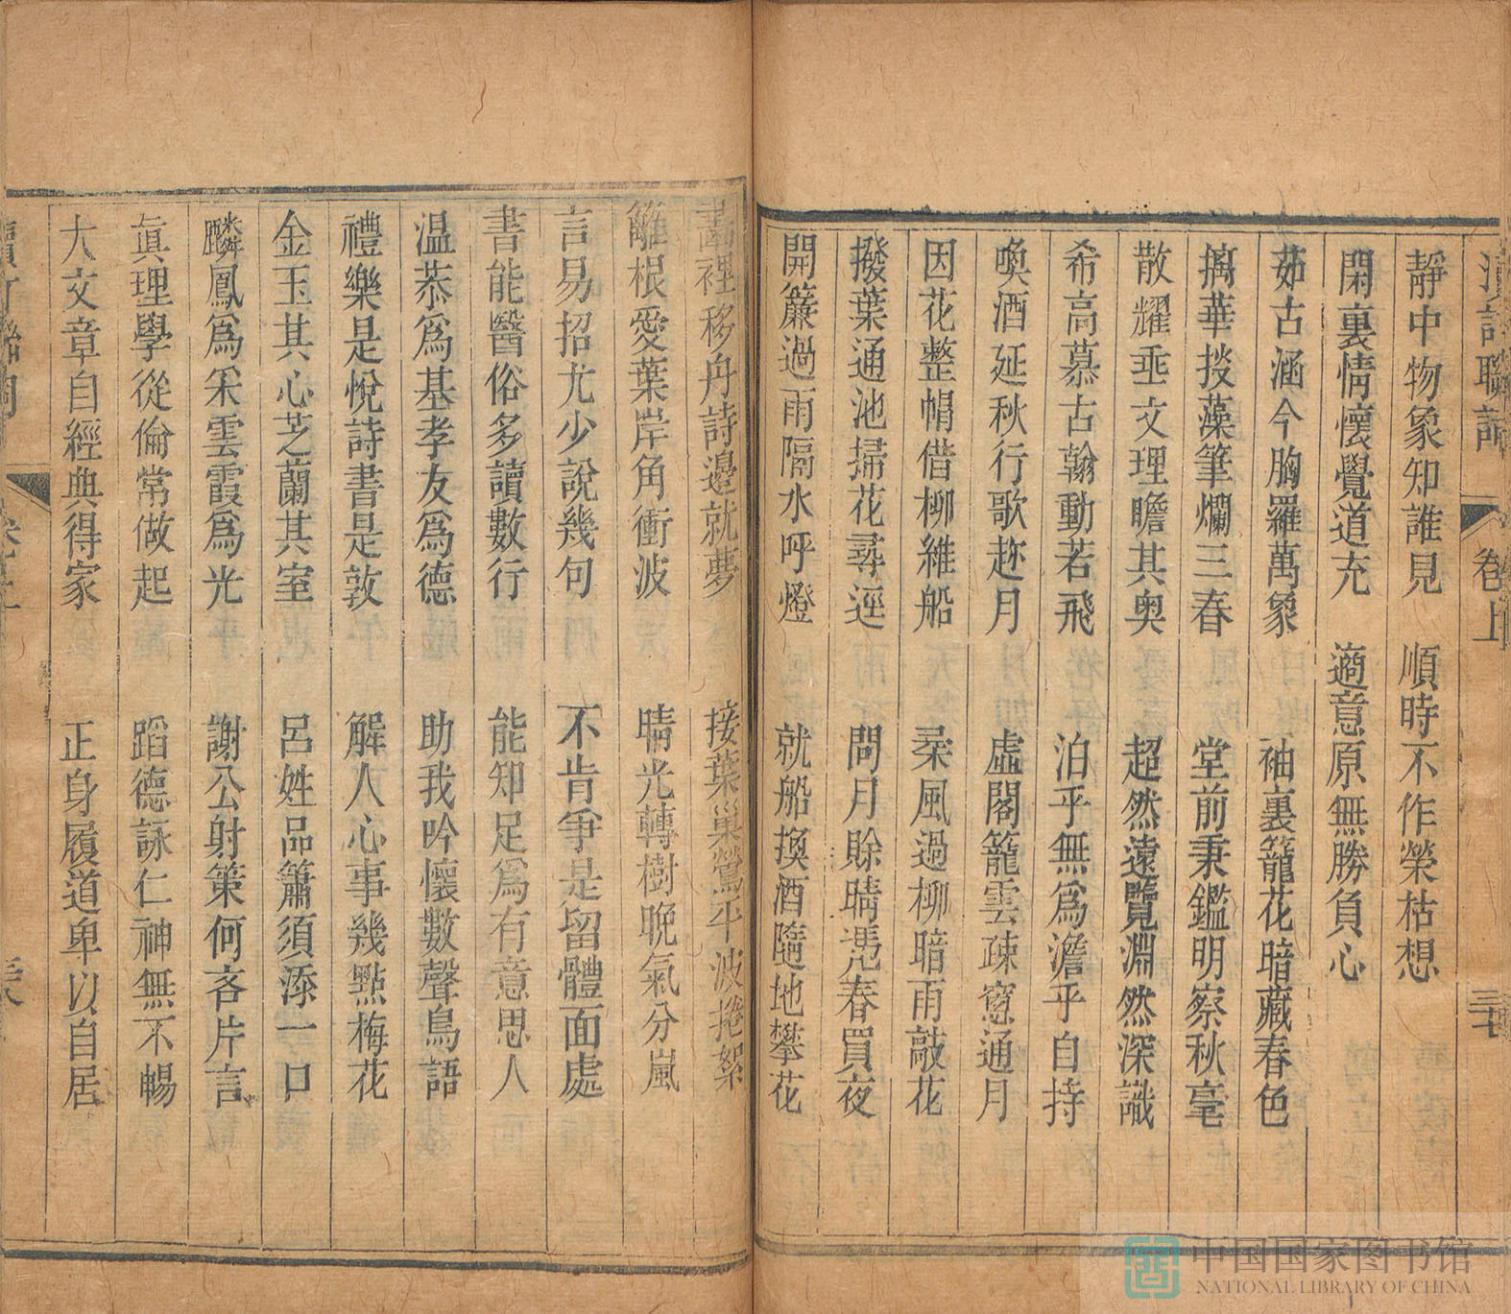 卷上
靜中物象知誰見　順時不作榮枯想
閑裏情懷覺道充　適意原無勝負心
茹古涵今胸羅萬象　袖裏籠花暗藏春色
摛華掞藻筆爛三春　堂前秉鑑明察秋毫
散耀垂文理瞻其奧　超然遠覽淵然深識
希高慕古翰動若飛　泊乎無爲澹乎自持
喚酒延秋行歌趂月　虛閣籠雲疎窻通月
因花整帽借柳維船　槑風過柳暗雨敲花
撥葉通池掃花尋逕　問月賒晴慿春買夜
開簾過雨隔水呼燈　就船換酒隨地攀花
畵裡移舟詩邊就夢　接葉巢鶯平波捲絮
籬根愛葉岸角衝波　晴光轉樹晚氣分嵐
言易招尤少說幾句　不肯爭是留體面處
書能醫俗多讀數行　能知足爲有意思人
温恭爲基孝友爲德　助我吟懷數聲鳥語
禮樂是悅詩書是敦　解人心事幾點梅花
金玉其心芝蘭其室　呂姓品簫須添一口
麟鳳爲采雲霞爲光　謝公射策何吝片言
眞理學從倫常做起　蹈德詠仁神無不暢
大文章自經典得家　正身履道卑以自居
中国国家图书馆
NATIONAL LIBRARY OF CHINA